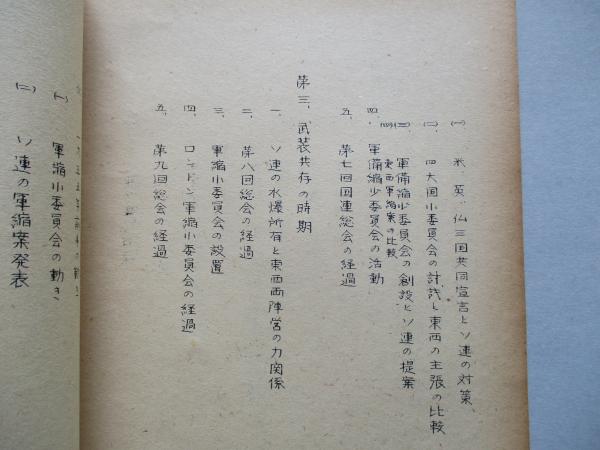 (一) 米、英、仏三国共同宣言とソ連の対策、
(二) 四大国小委員会の討議と東西の主張の比較、
(三) 軍備縮少委員会の創設とソ連の提案
(四) 東西軍縮案の比較
四、軍備縮少委員会の活動
五、第七回国連総会の経過
第三、武装共存の時期
一、ソ連の水爆所有と東西両陣営の力関係
二、第八回総会の経過
三、軍縮小委員会の設置
四、ロンドン軍縮小委員会の経過
五、第九回総会の経過
(一) 軍縮小委員会の動き
(二) ソ連の軍縮案発表